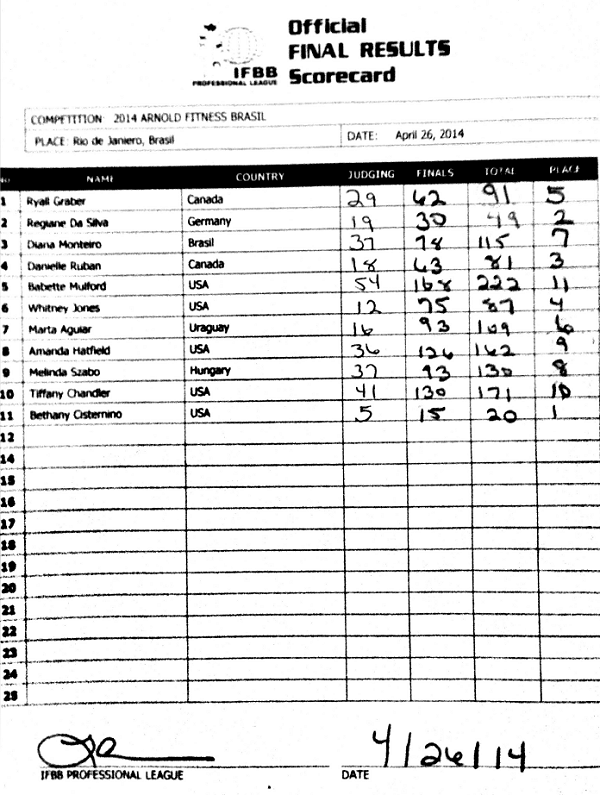 Official
FINAL RESULTS
Scorecard
IFBB
PROFESSIONAL LEAGUE
COMPETITION: 2014 ARNOLD FITNESS BRASIL
PLACE: Rio de Janiero, Brasil DATE: April 26, 2014
No NAME COUNTRY JUDGING FINALS TOTAL PLACE
1 Ryall Graber Canada 29 62 91 5
2 Regiane Da Silva Germany 19 30 49 2
3 Diana Monteiro Brasil 37 78 115 7
4 Danielle Ruban Canada 18 63 81 3
5 Babette Mulford USA 54 168 222 11
6 Whitney Jones USA 12 75 87 4
7 Marta Aguiar Uraguay 16 93 109 6
8 Amanda Hatfield USA 36 126 162 9
9 Melinda Szabo Hungary 37 93 130 8
10 Tiffany Chandler USA 41 130 171 10
11 Bethany Cisternino USA 5 15 20 1
12
14
15
16
17
18
19
20
21
22
23
24
25
4/26/14
IFBB PROFESSIONAL LEAGUE DATE